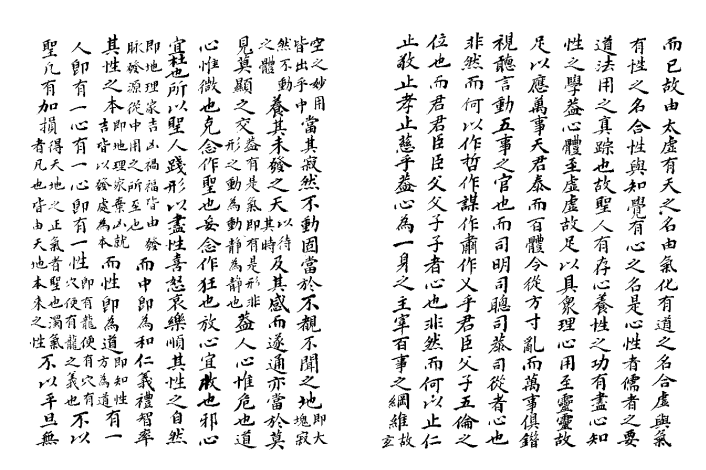 而已故由太虛有天之名由氣化有道之名合虛與氣
有性之名合性與知覺有心之名是心性者儒者之要
道法用之真踪也故聖人有存心養性之功有盡心知
性之學蓋心體至虛虛故足以具衆理心用至靈靈故
足以應萬事天君泰而百體令從方寸亂而萬事俱錯
視聽言動五事之官也而司明司聰司恭司從者心也
非然而何以作哲作謀作肅作乂乎君臣父子五倫之
位也而君君臣臣父父子子者心也非然而何以止仁
止敬止孝止慈乎蓋心為一身之主宰百事之綱維故玄
空之妙用皆出乎中當其寂然不動固當於不覩不聞之地即大塊寂
然不動之體養其未發之天以待其時及其感而遂通亦當於莫
見莫顯之交蓋有是氣即有是形非形之動為動靜為靜也蓋人心惟危也道
心惟微也克念作聖也妄念作狂也放心宜收也邪心
宜杜也所以聖人踐形以盡性喜怒哀樂順其性之自然
即地理家吉凶禍福皆由發脉發源從中用之所至也而中即為和仁義禮智率
其性之本即地理家棄凶就吉皆以發處為本而性即為道即知性方為道有一
人即有一心有一心即有一性即有龍便有穴有穴便有龍之義也不以
聖凡有加損得天地之正氣者聖也濁氣者凡也皆由天地本來之性不以平旦無